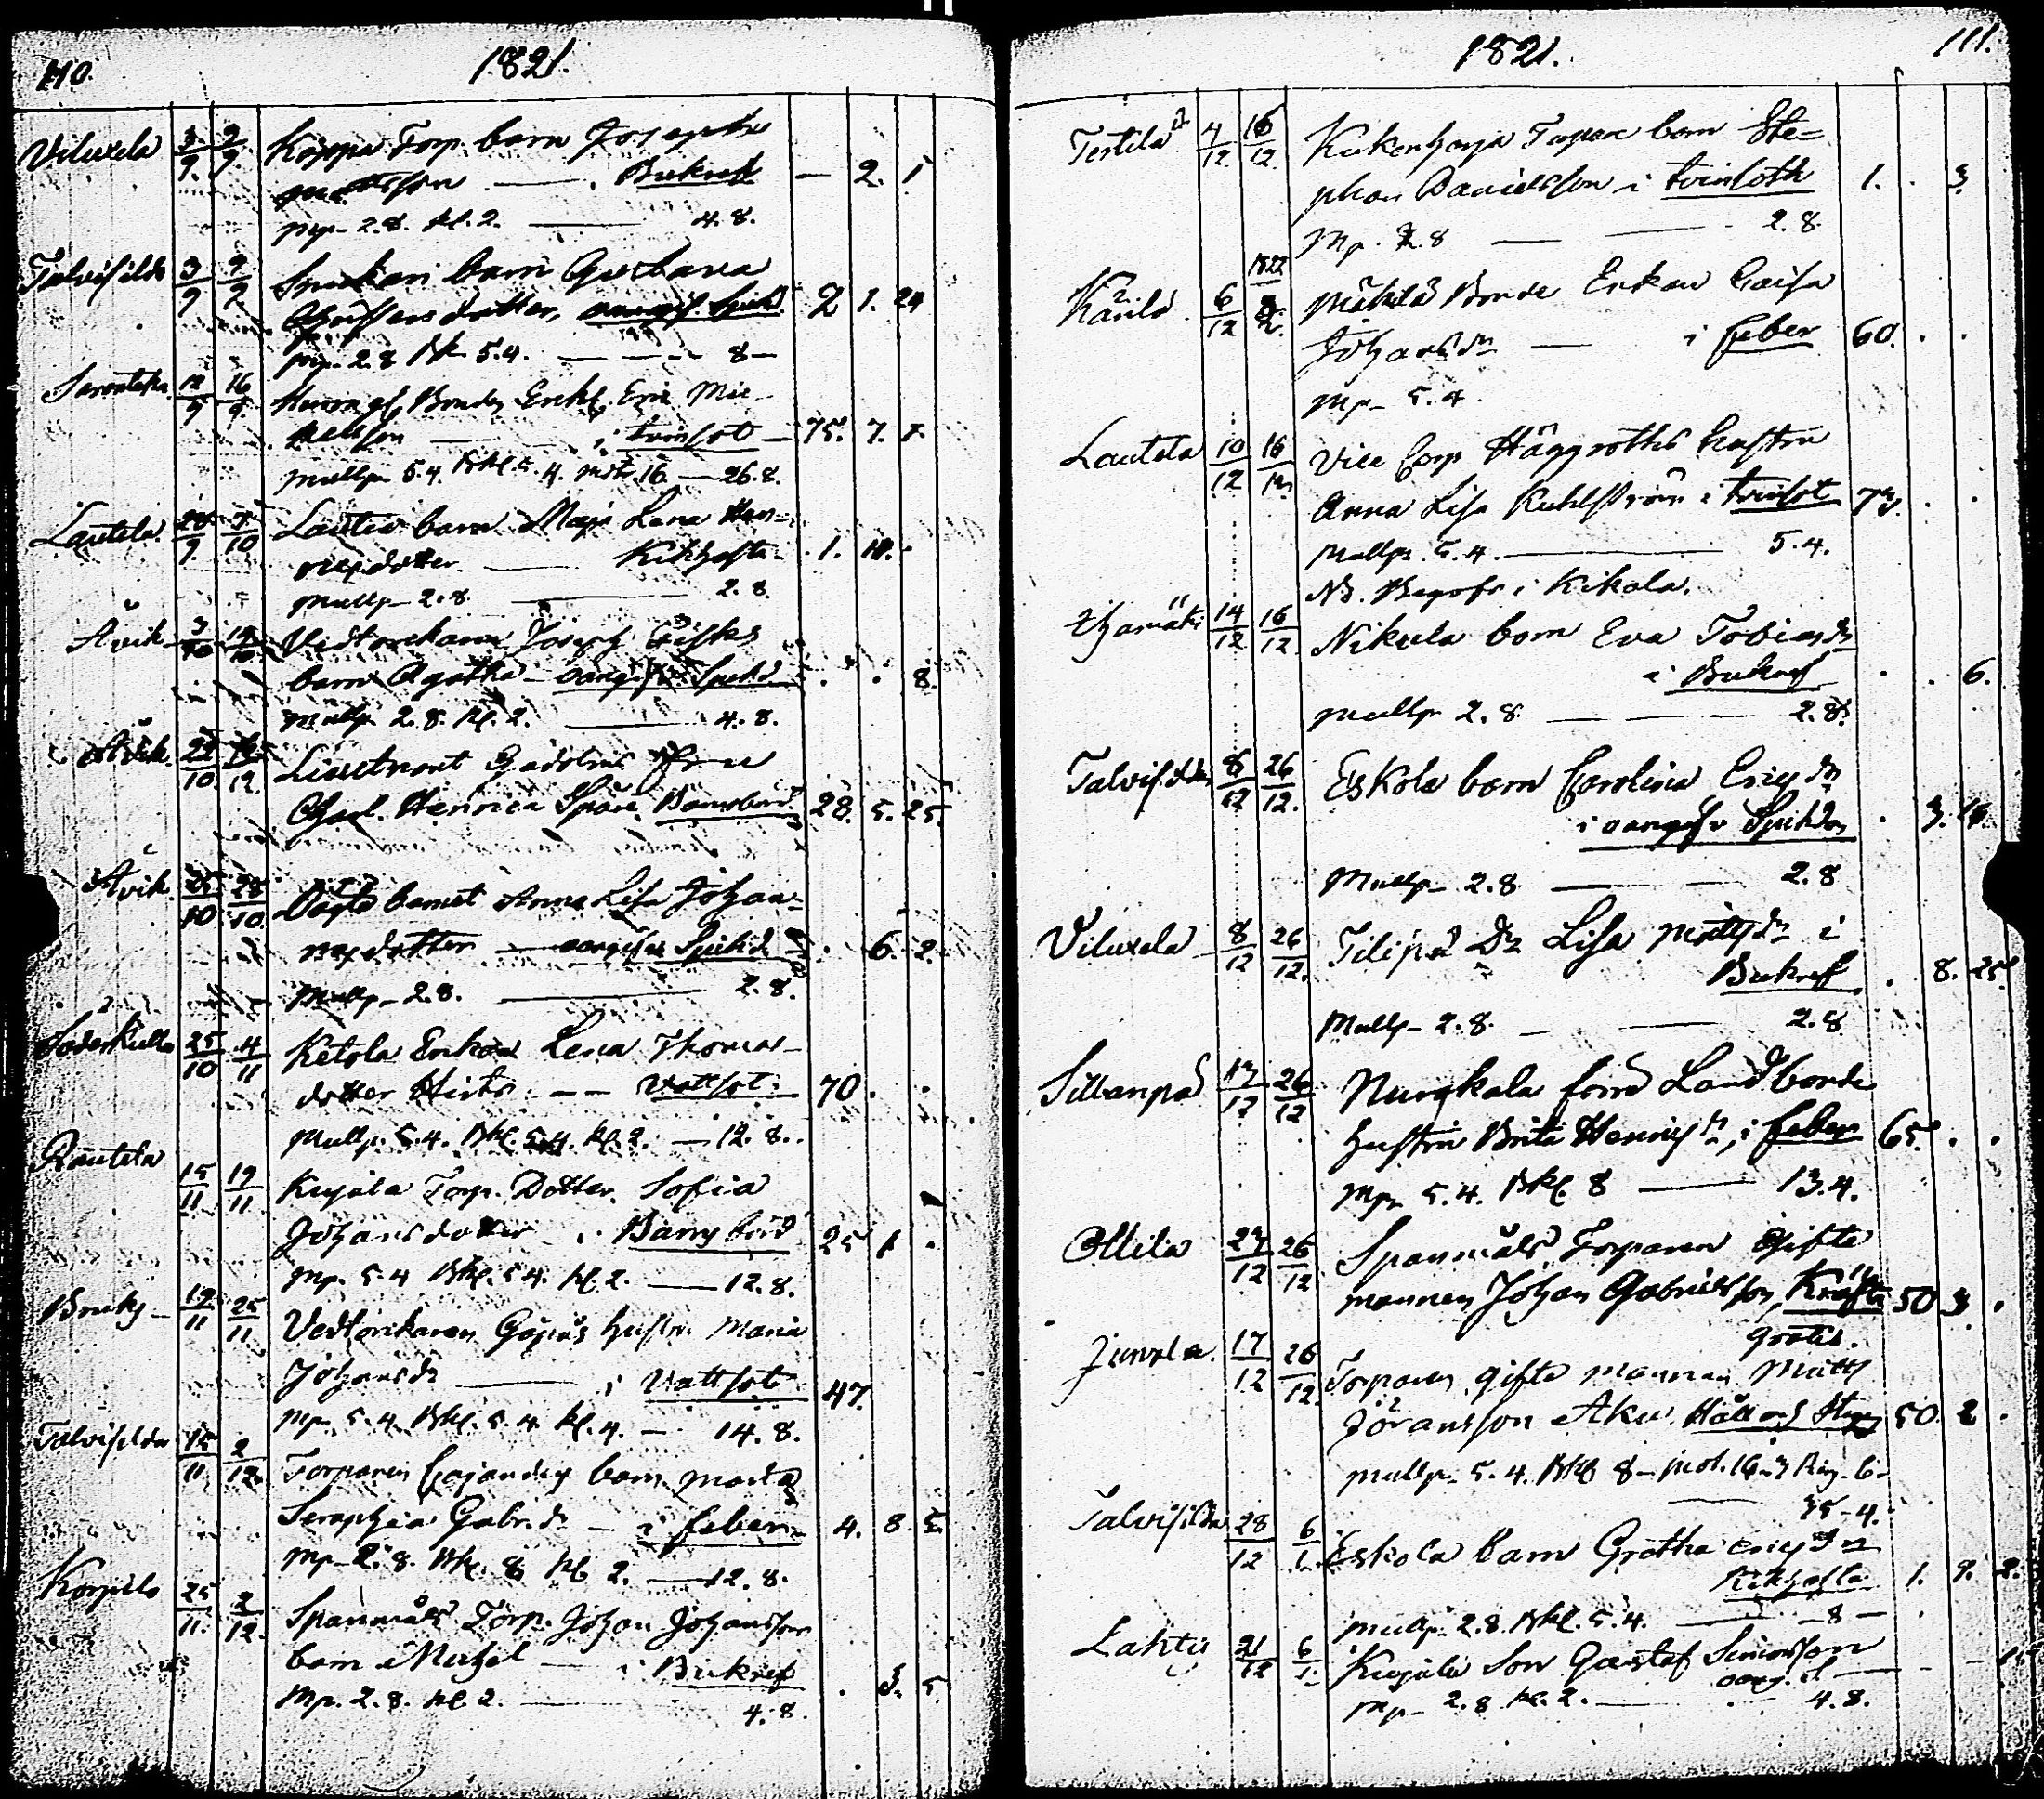 110.
1821.
Viluxela 3/9 9/9 Koppa Torp. barn Joseph
Mattsson — Bukref — 2. 1
Mp. 2.8. Kl. 2. — 4.8.
Talvisilda 3/9 9/9 barn Gustava
Gustafsdotter, oangif. Spikd 2 1. 24
Mp. 2.8 Bkl. 5.4. — 8 —
12/9 16/9 Bondes Enkl. Eric Mic-
kelsson — i tvinsot — 75. 7.
Mullp. 5.4. Bkl. 5.4. 16 — 26.8.
Lautela 7/10 barn Maja Lena Hen-
ricsdotter — Kikhosta . 1.
Mullp. 2.8. — 2.8.
Åvik 3/10 14/10 Joseph
barn Agatha — oangifven Spikd . . 8.
Mullp. 2.8. Kl. 2. — 4.8.
Åvik. Lieutnant Gadolins Fru
Charl. Henrica Spåre Barnsbörd 28. 5. 25.
Åvik. 25/10 28/10. barnet Anna Lisa Johan-
nesdotter — oangifven Spikd . 6. 2.
Mullp. 2.8. — 2.8.
Söderkulla 25/10 4/11 Ketola Enkan Lena Thomas-
dotter — Vattsot. 70 . .
Mullp. 5.4. Bkl. 5.4. Kl. 2. — 12.8.
Rautela
15/11 19/11 Kujala Torp. Dotter Sofia
Johansdotter i Barnsbörd 25 1 .
Mp. 5.4 Bkl. 5.4. Kl. 2. — 12.8.
Bruks — 19/11 25/11 hustru Maria
Johansdr — i Vattsot 47.
Mp. 5.4. Bkl. 5.4. Kl. 4. — 14.8.
Talvisilda 15/11 2/12. Torparen Cajanders barn
Seraphia Gabr.dr — i feber — 4. 8. 5.
Mp. 2.8. Bkl. 8 Kl. 2. — 12.8.
Korpila 25/11. 2/12. Spanmåls Torp. Johan Johansson
barn Michel — i Bukref . 3. 5.
Mp. 2.8. Kl. 2. — 4.8.
1821.
111.
Testilä 4/12 16/12 Kukonharja Torpare barn Ste-
phan Danielsson i tvinsoth 1. . 3.
Mp. 2.8 — 2.8.
1822
Kärilä 6/12 Mäkilä Bonde Enkan Caisa
Johansdr — i feber 60. . .
Mp. 5.4.
Lautela 10/12 16/12 Vice Corp. Häggroths hustru
Anna Lisa Kuhlström i tvinsot 73. . .
Mullp. 5.4. — 5.4.
NB. Begrofs i Kikala.
14/12 16/12 Nikula barn Eva Tobiasdr
i Bukref . . 6.
Mullp. 2.8. — 2.8.
Talvisilda 8/12 26/12. Eskola barn Carolina Ericsdr
i oangifv. Spikdom . 3.
Mullp. 2.8. — 2.8
Viluxela 8/12 26/12. Filpa Dr Lisa Mattsdr i
Bukref . 8. 25.
Mullp. 2.8. — 2.8
Sillanpä 26/12 Nurckala förre Landbonde
hustru Brita Henricsdr, i feber 65. . .
Mp. 5.4. Bkl. 8 — 13.4.
Ollila 26/12 Spanmåls Torparen Gifte
mannen Johan Gabrielsson, Kräfta 50 3 .
gratis.
Junnola. 17/12 26/12. Torparen, gifte mannen Matts
Jöransson Aku, Håll och Styng 50. 2 .
Mullp. 5.4. Bkl. 8 — 16. Ring. 6 —
— 35-4.
Talvisilda 28/12 6/1. Eskola barn Gretha Ericsdr
Kikhosta 1. 9. 2.
Mullp. 2.8. Bkl. 5.4. — 8 —
Lahtis 21/12 6/1. Kujala Son Gustaf Simonsson
oang.
Mp. 2.8 Kl. 2. — 4.8.